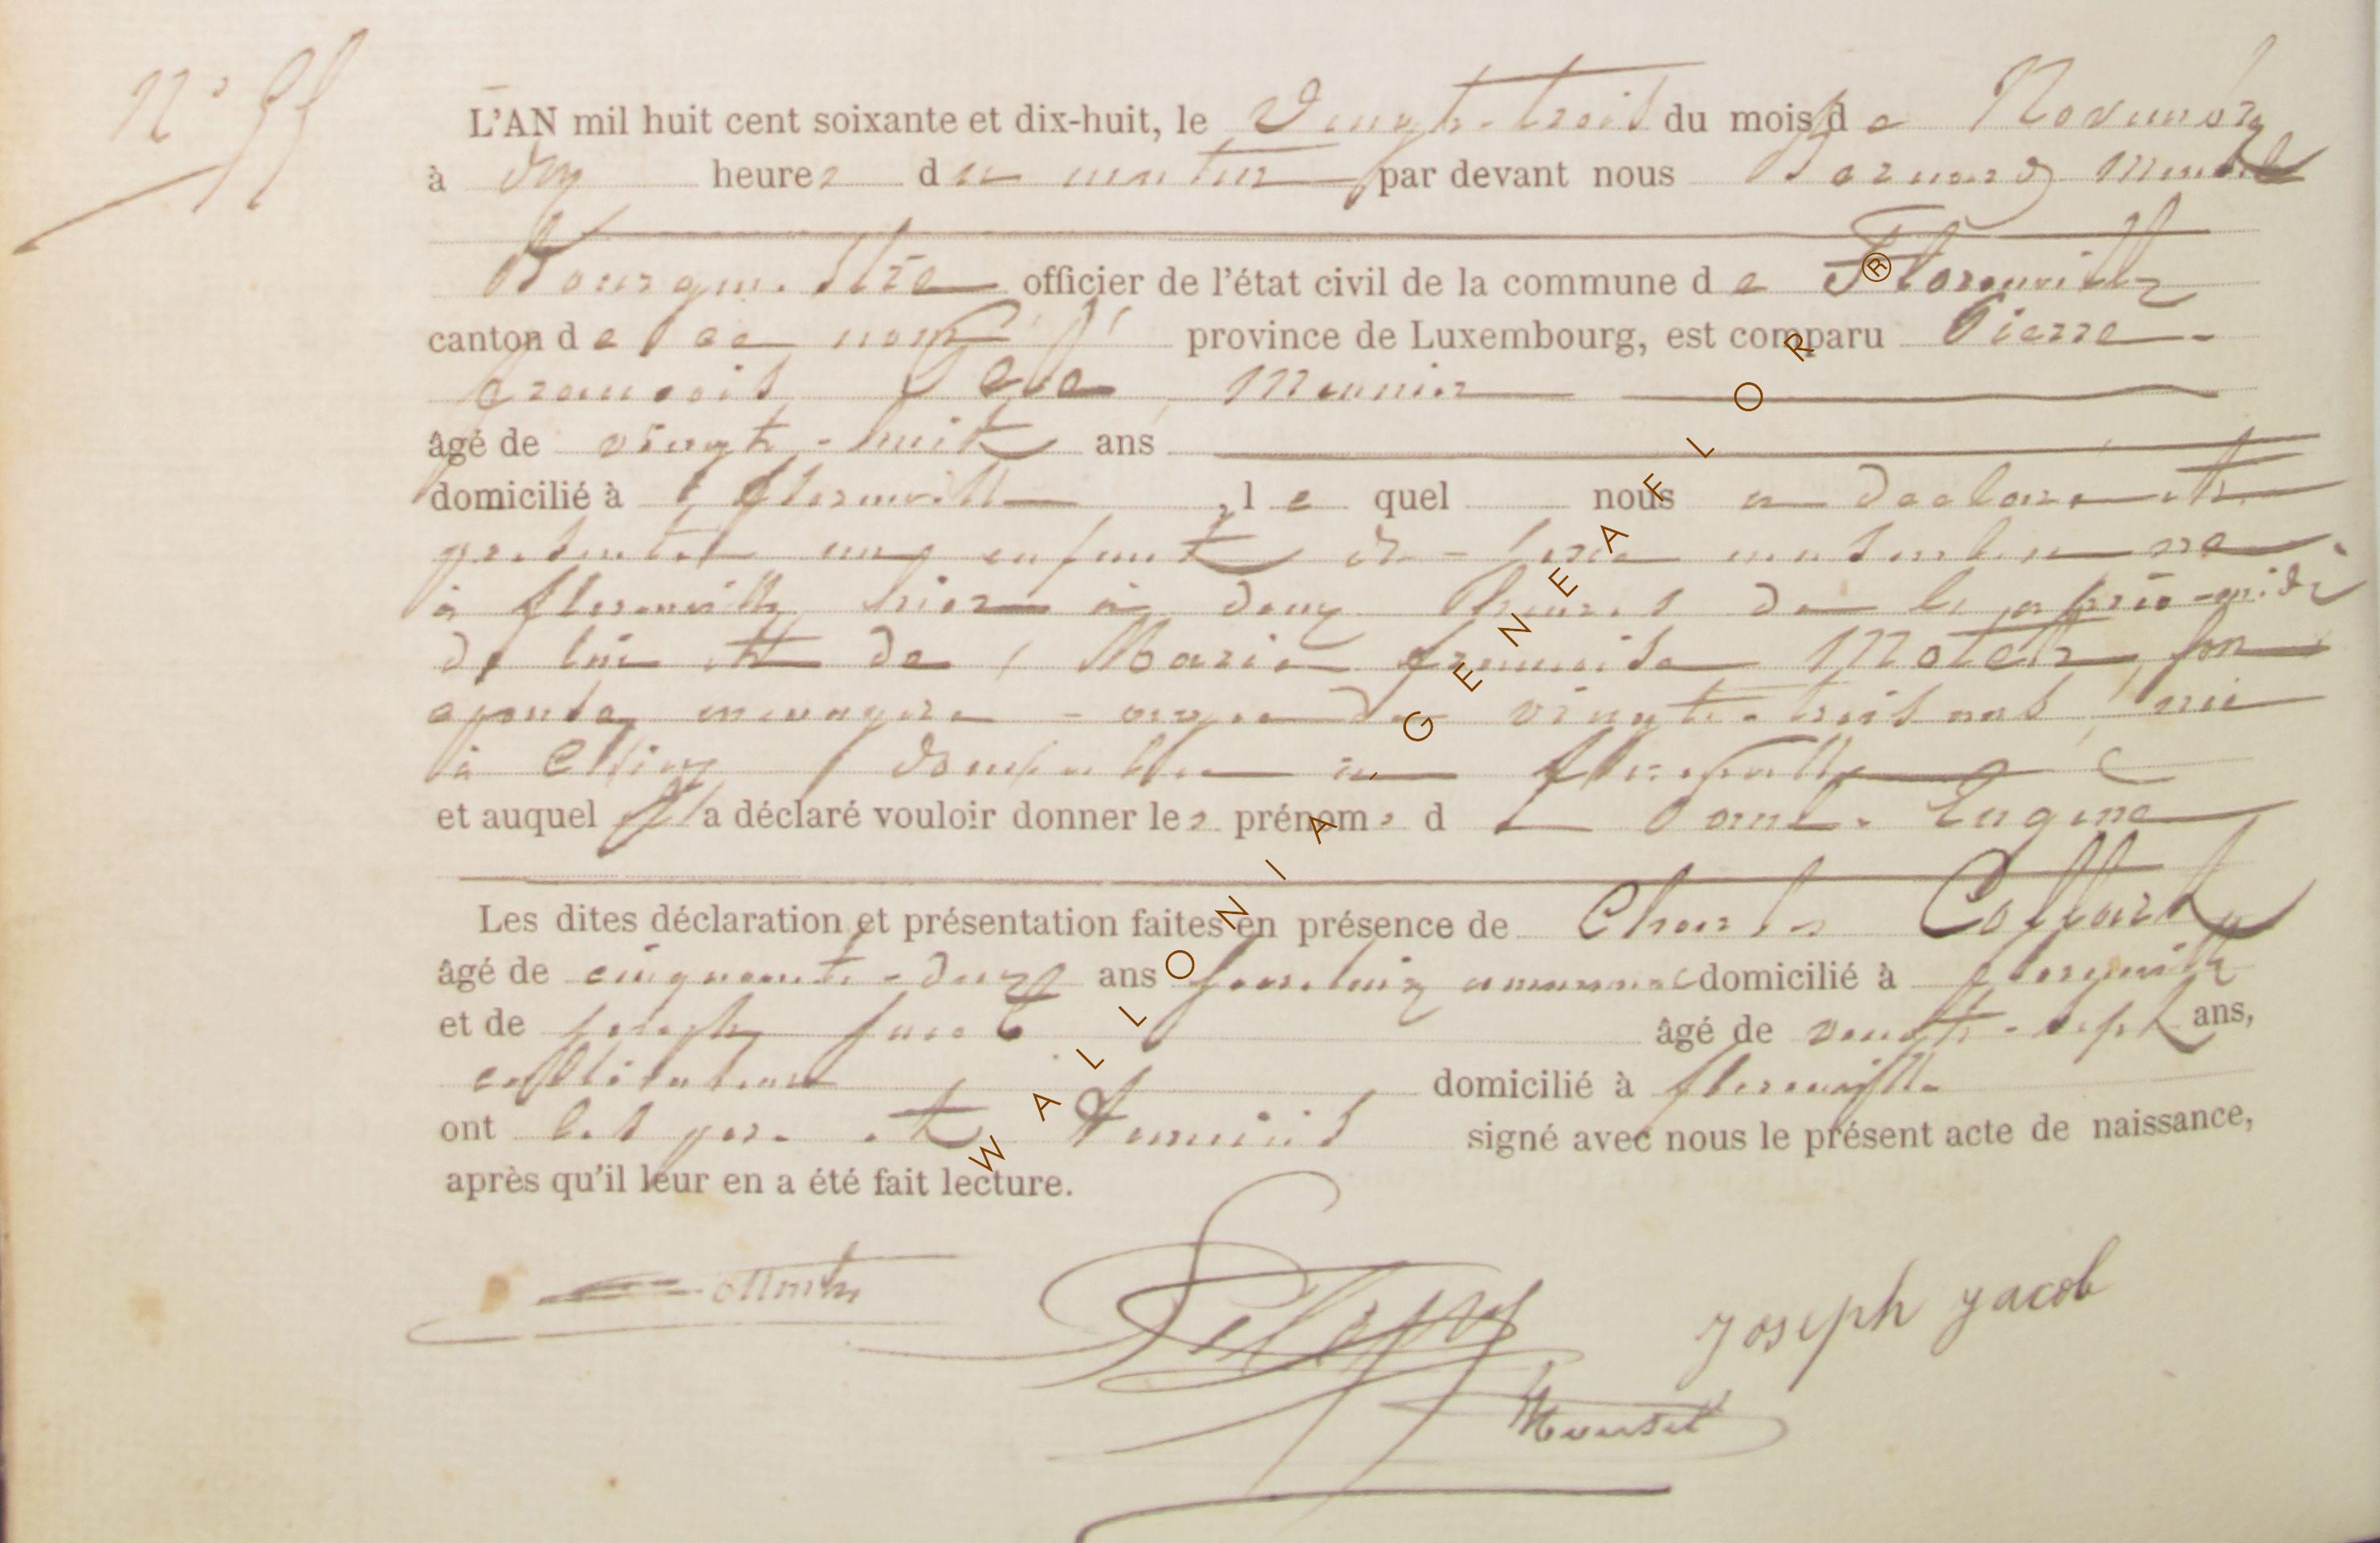 N° 55
L'AN mil huit cent soixante et dix-huit, le Vingt-trois du mois de Novembre
à dix heures du matin par devant nous Bernard
Bourgmestre officier de l'état civil de la commune de Florenville
canton de ce nom province de Luxembourg, est comparu Pierre
françois menuisier
âgé de vingt-huit ans
domicilié à florenville, lequel nous a déclaré et
presenté un enfant de sexe masculin né
à florenville hier à deux heures de l'après-midi
de lui et de Marie françoise son
épouse, menagère agée de vingt-trois ans, née
à domiciliée à florenville
et auquel il a déclaré vouloir donner les prénoms de Paul-Eugène
Les dites déclaration et présentation faites en présence de Charles Collard
âgé de cinquante-deux ans domicilié à florenville
et de joseph jacob âgé de vingt-sept ans,
cultivateur domicilié à florenville
ont les père et témoins signé avec nous le présent acte de naissance,
après qu'il leur en a été fait lecture.
Joseph Jacob
WALLONIA GENEAFLOR®